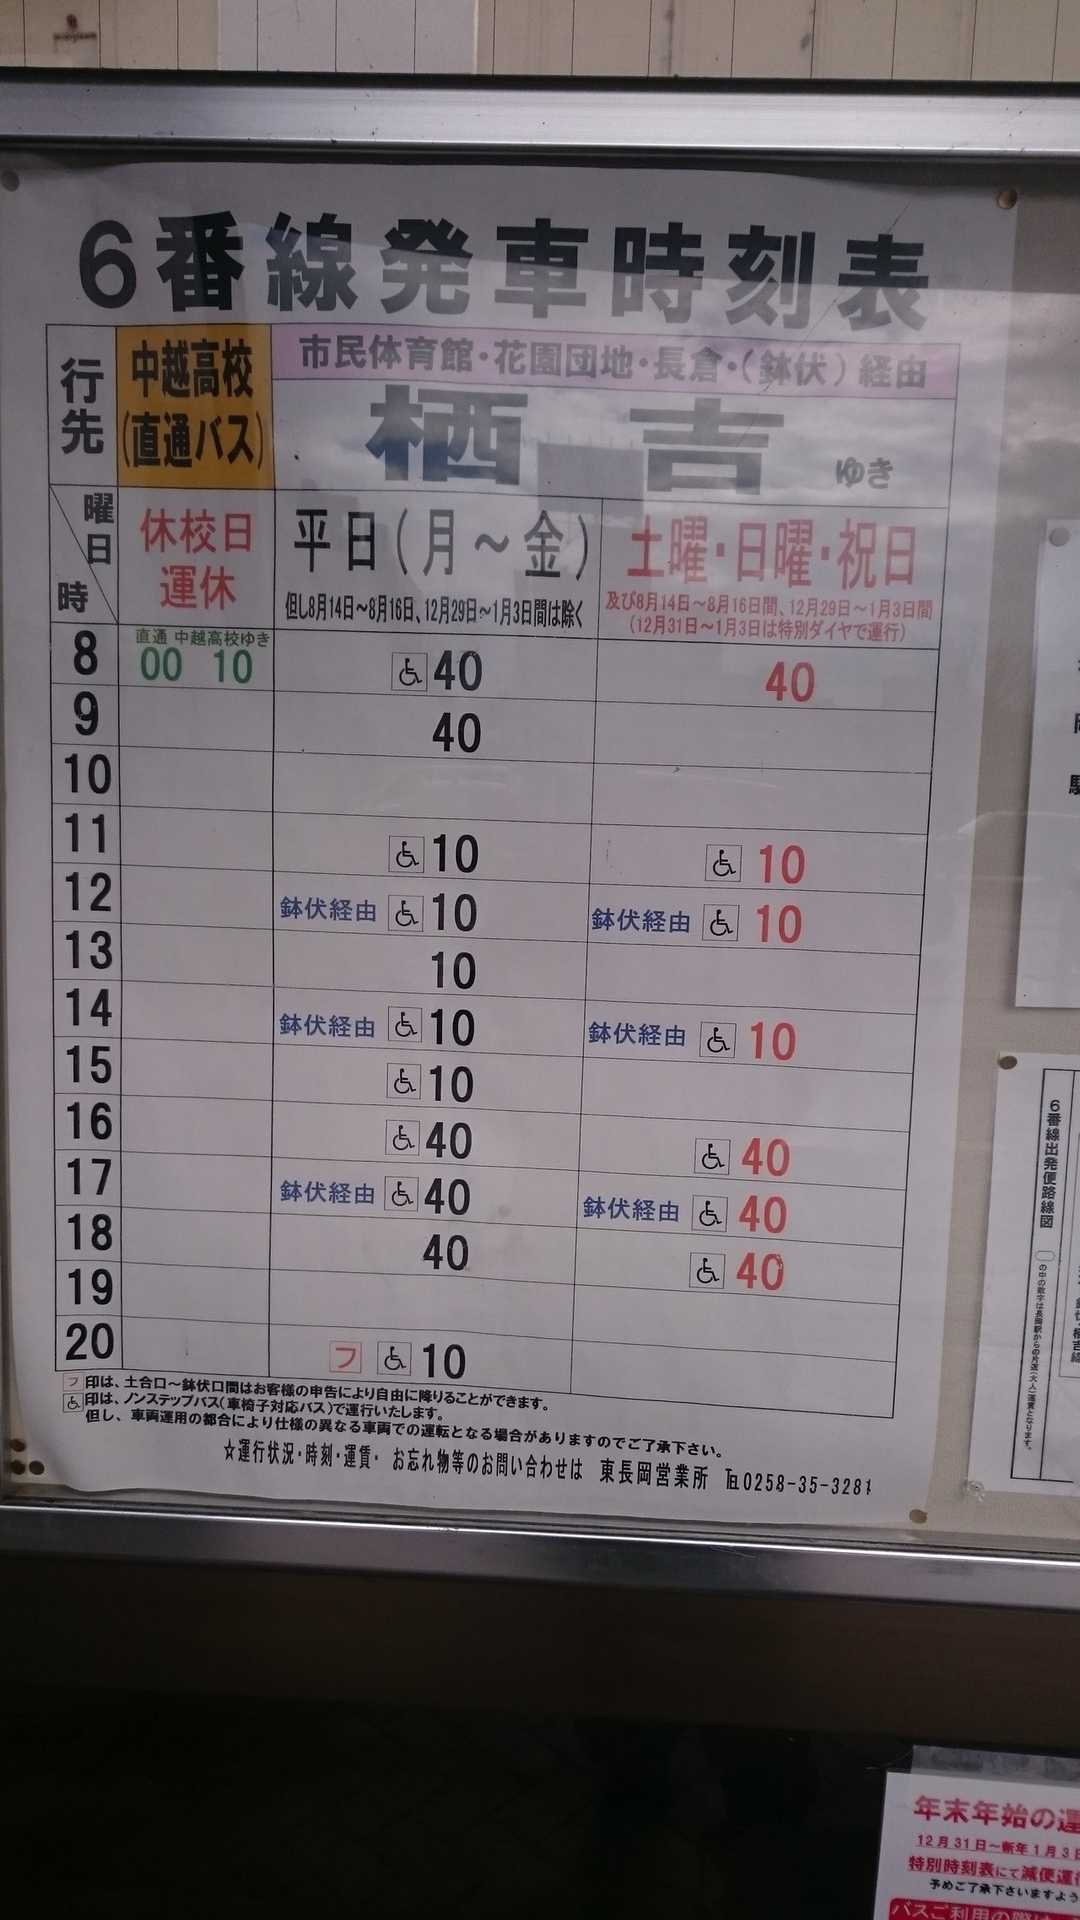 6番線発車時刻表
行先
中越高校
(直通バス)
市民体育館・花園団地・長倉・(鉢伏)経由
栖吉 ゆき
曜日
時
休校日
運休
平日(月～金)
但し8月14日～8月16日、12月29日～1月3日間は除く
土曜・日曜・祝日
及び8月14日～8月16日間、12月29日～1月3日間
(12月31日～1月3日は特別ダイヤで運行)
直通 中越高校ゆき
8 00 10 40 40
9 40
10
11 10 10
12 鉢伏経由 10 鉢伏経由 10
13 10
14 鉢伏経由 10 鉢伏経由 10
15 10
16 40 40
17 鉢伏経由 40 鉢伏経由 40
18 40 40
19
20 フ 10
フ 印は、土合口～鉢伏口間はお客様の申告により自由に降りることができます。
印は、ノンステップバス(車椅子対応バス)で運行いたします。
但し、車両運用の都合により仕様の異なる車両での運転となる場合がありますのでご了承下さい。
☆運行状況・時刻・運賃・ お忘れ物等のお問い合わせは 東長岡営業所 ℡0258-35-3281
6番線出発便路線図
の中の数字は長岡駅からの片道(大人)運賃となります。
年末年始の運
12月31日～新年1月3日
特別時刻表にて減便運
予めご了承下さいますよう
バスご利用の際は